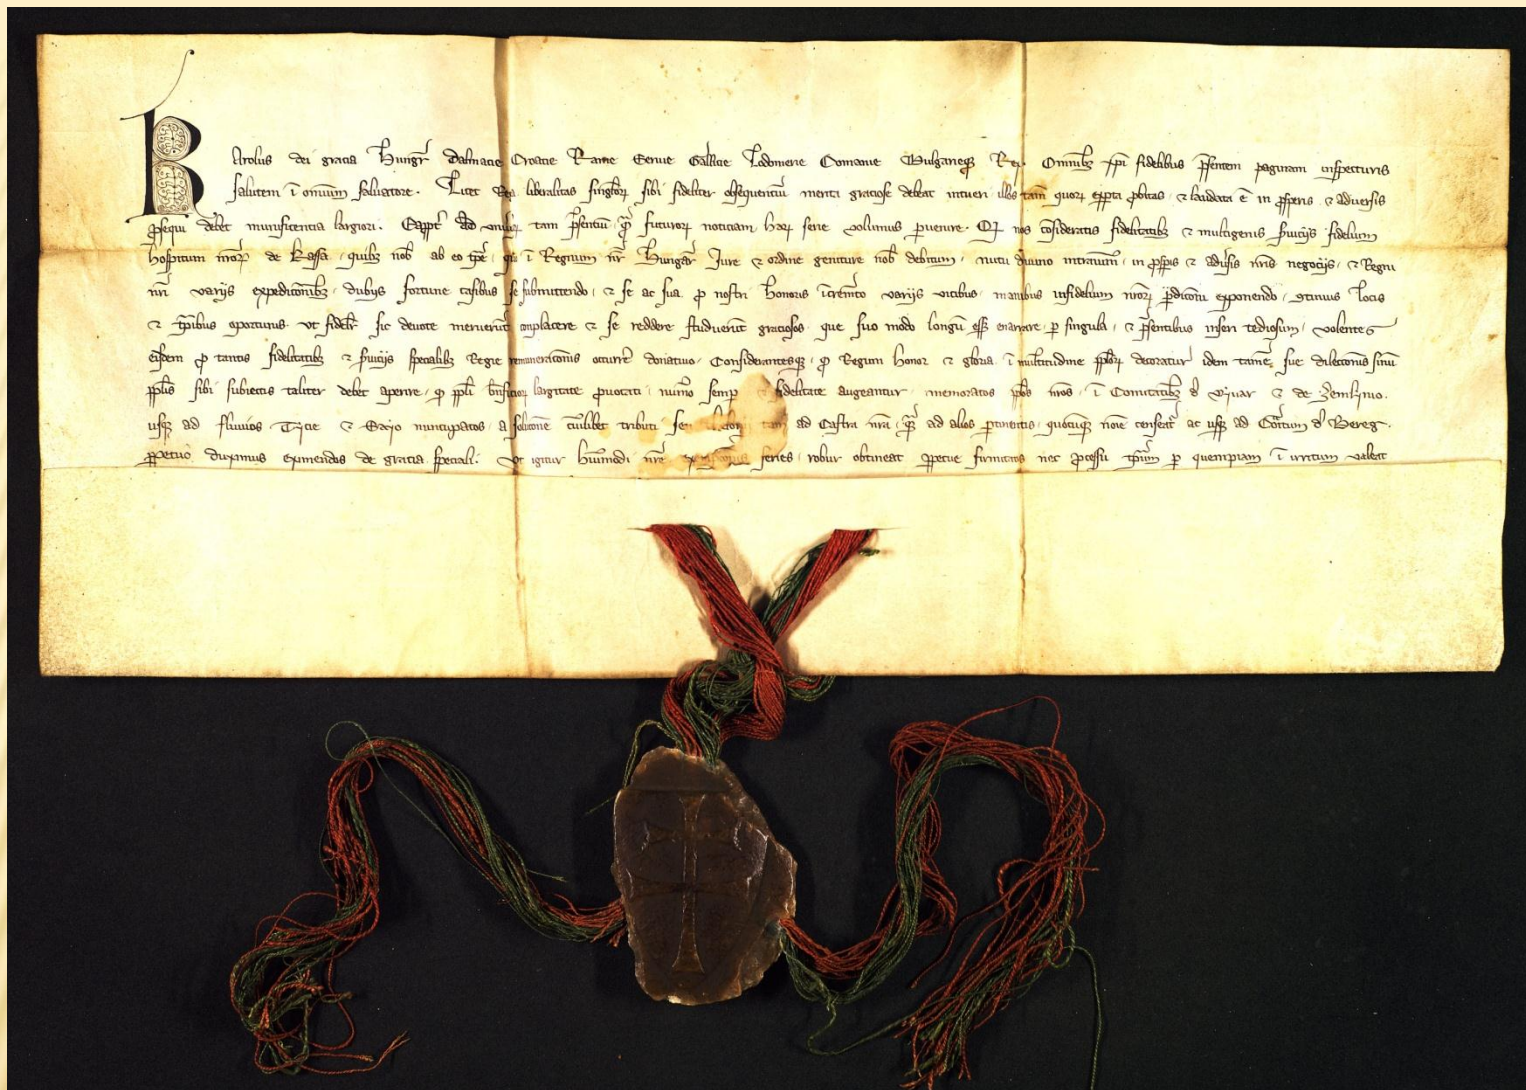 Karolus dei gratia Hungar̄ Dalmatie Croatie Rame Servie Gallicie Lodomerie Comanie Bulgarieqꝫ Rex Omnibꝫ xp̄i fidelibus p̄sentem paginam inspecturis
salutem ī omnium salvatore. Licet Regia liberalitas singulorꝫ sibi fideliter obsequentiū merita gratiose debeat intueri illos tam̄ quorꝫ exp̄ta p̄bitas ⁊ laudata ē in p̄speris ⁊ adversis
p̄sequi debet munificentia largiori. ad univ̄sorꝫ tam p̄sentiū qᵃm futurorꝫ notitiam harꝫ serie volumus p̄venire. nos cōsideratis fidelitatibꝫ ⁊ multigenis s̄vicijs fidelium
hospitum nr̄orꝫ de Kassa quibꝫ nob̄ ab eo tp̄e quo ī Regnum nr̄m Hungar̄ Jure ⁊ ordine geniture nob̄ debitum nutu divino intravim̄ in p̄sp̄is ⁊ adv̄sis nr̄is negocijs ⁊ Regni
nr̄i varijs expeditionibꝫ dubijs fortune casibus se submittendo ⁊ se ac sua p̄ nostri honoris īcrem̄to varijs vicibus manibus infidelium nr̄orꝫ exponendo locis
⁊ tp̄ribus oportunis ut fidelit̄ sic devote meruerūt complacere ⁊ se reddere studuerūt gratiosos que suo modo longū esset enarrare p̄ singula ⁊ p̄sentibus inseri tediosum volentes
eisdem p̄ tantis fidelitatibꝫ ⁊ s̄vicijs specialibꝫ Regie remunerationis occurrere donativo Considerantesqꝫ qꝫ Regum honor ⁊ gloria ī multitudine pp̄lorꝫ decoratur idem tamē sue dilectionis sinū
pp̄lis sibi subiectis taliter debet aperire qꝫ pp̄li largitate p̄vocati num̄o semp̄ ⁊ fidelitate augeantur memoratos hosp̄ites nr̄os ī Comitatibꝫ de Vyvar ⁊ de Zemlinio
usqꝫ ad fluvios Tycie ⁊ Scayo nuncupatos a solutione cuiuslibet tributi seu tam ad Castra nr̄a qᵃm ad alios p̄tinentis quocūqꝫ noīe censeat̄ ac usqꝫ ad Cōitatum de Bereg
p̄petuo duximus eximendos de gratia speciali. Ut igitur hui᾽modi nr̄e series robur obtineat p̄petue firmitatis nec p̄cessu tp̄rum p̄ quempiam ī irritum valeat